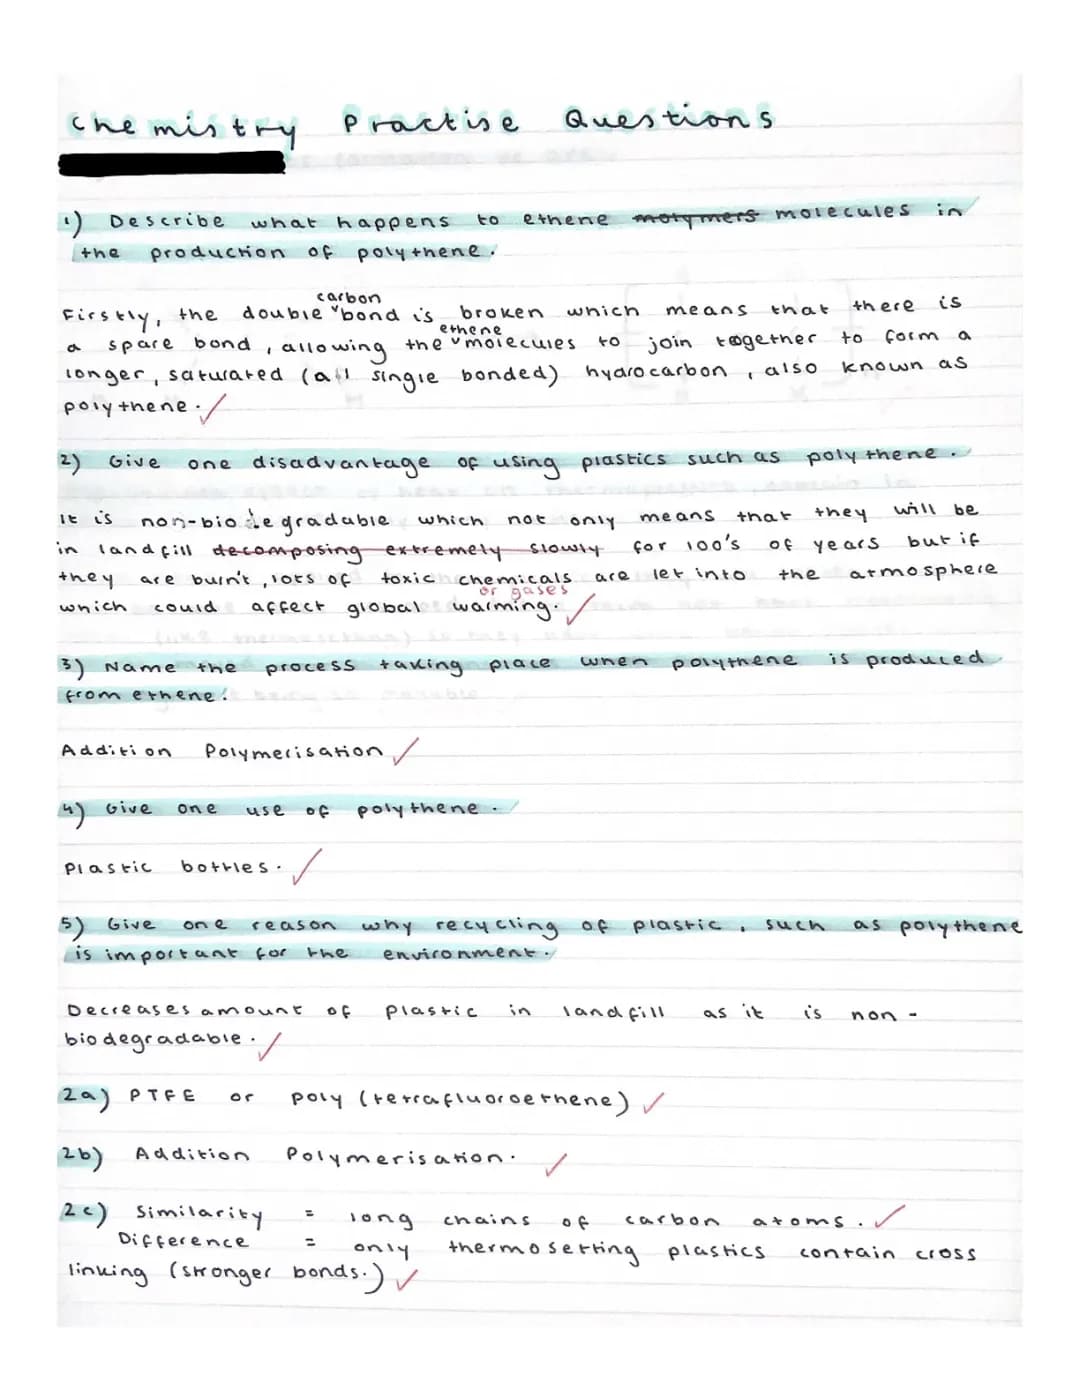 Chemistry Practise Questions
1) Describe what happens to ethene motymers molecules in
the production of polythene.
carbon
Firstly, the double bond is broken which means that there is
ethene
a spare bond, allowing the molecules to join together to form a
longer, saturated (all single bonded) hydrocarbon, also known as
polythene.
2) Give one disadvantage of using plastics such as polythene.
It is non-biodegradable which not only means that they will be
in landfill decomposing extremely slowly for 100's of years but if
they are burn't, lots of toxic chemicals are let into the atmosphere
or gases
which could affect global warming.
3) Name the process taking place when polythene is produced
from ethene.
Addition Polymerisation
4) Give one use of polythene.
Plastic bottles.
5) Give one reason why recycling of plastic, such as polythene
is important for the environment.
Decreases amount of plastic in landfill as it is non-
biodegradable.
2a) PTFE or poly (tetrafluoroethene)
2b) Addition Polymerisation.
2c) Similarity = long chains of carbon atoms.
Difference = only thermosetting plastics contain cross
linking (stronger bonds.)